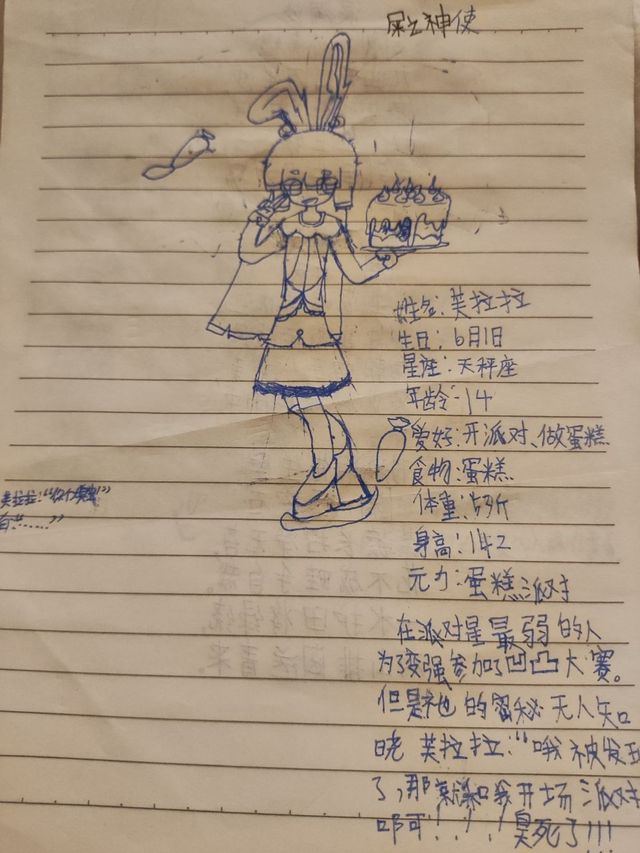 屎之神使
姓名:芙拉拉
生日:6月1日
星座:天秤座
年龄:14
爱好:开派对、做蛋糕
食物:蛋糕
体重:53斤
身高:142
元力:蛋糕派对
芙拉拉:“你个臭
自“……”
在派对星最弱的人
为了变强参加了凹凸大赛。
但是祂的密秘无人知
晓 芙拉拉:“哦被发现
了,那就和我开场派对
叩可!!!臭死了!!!